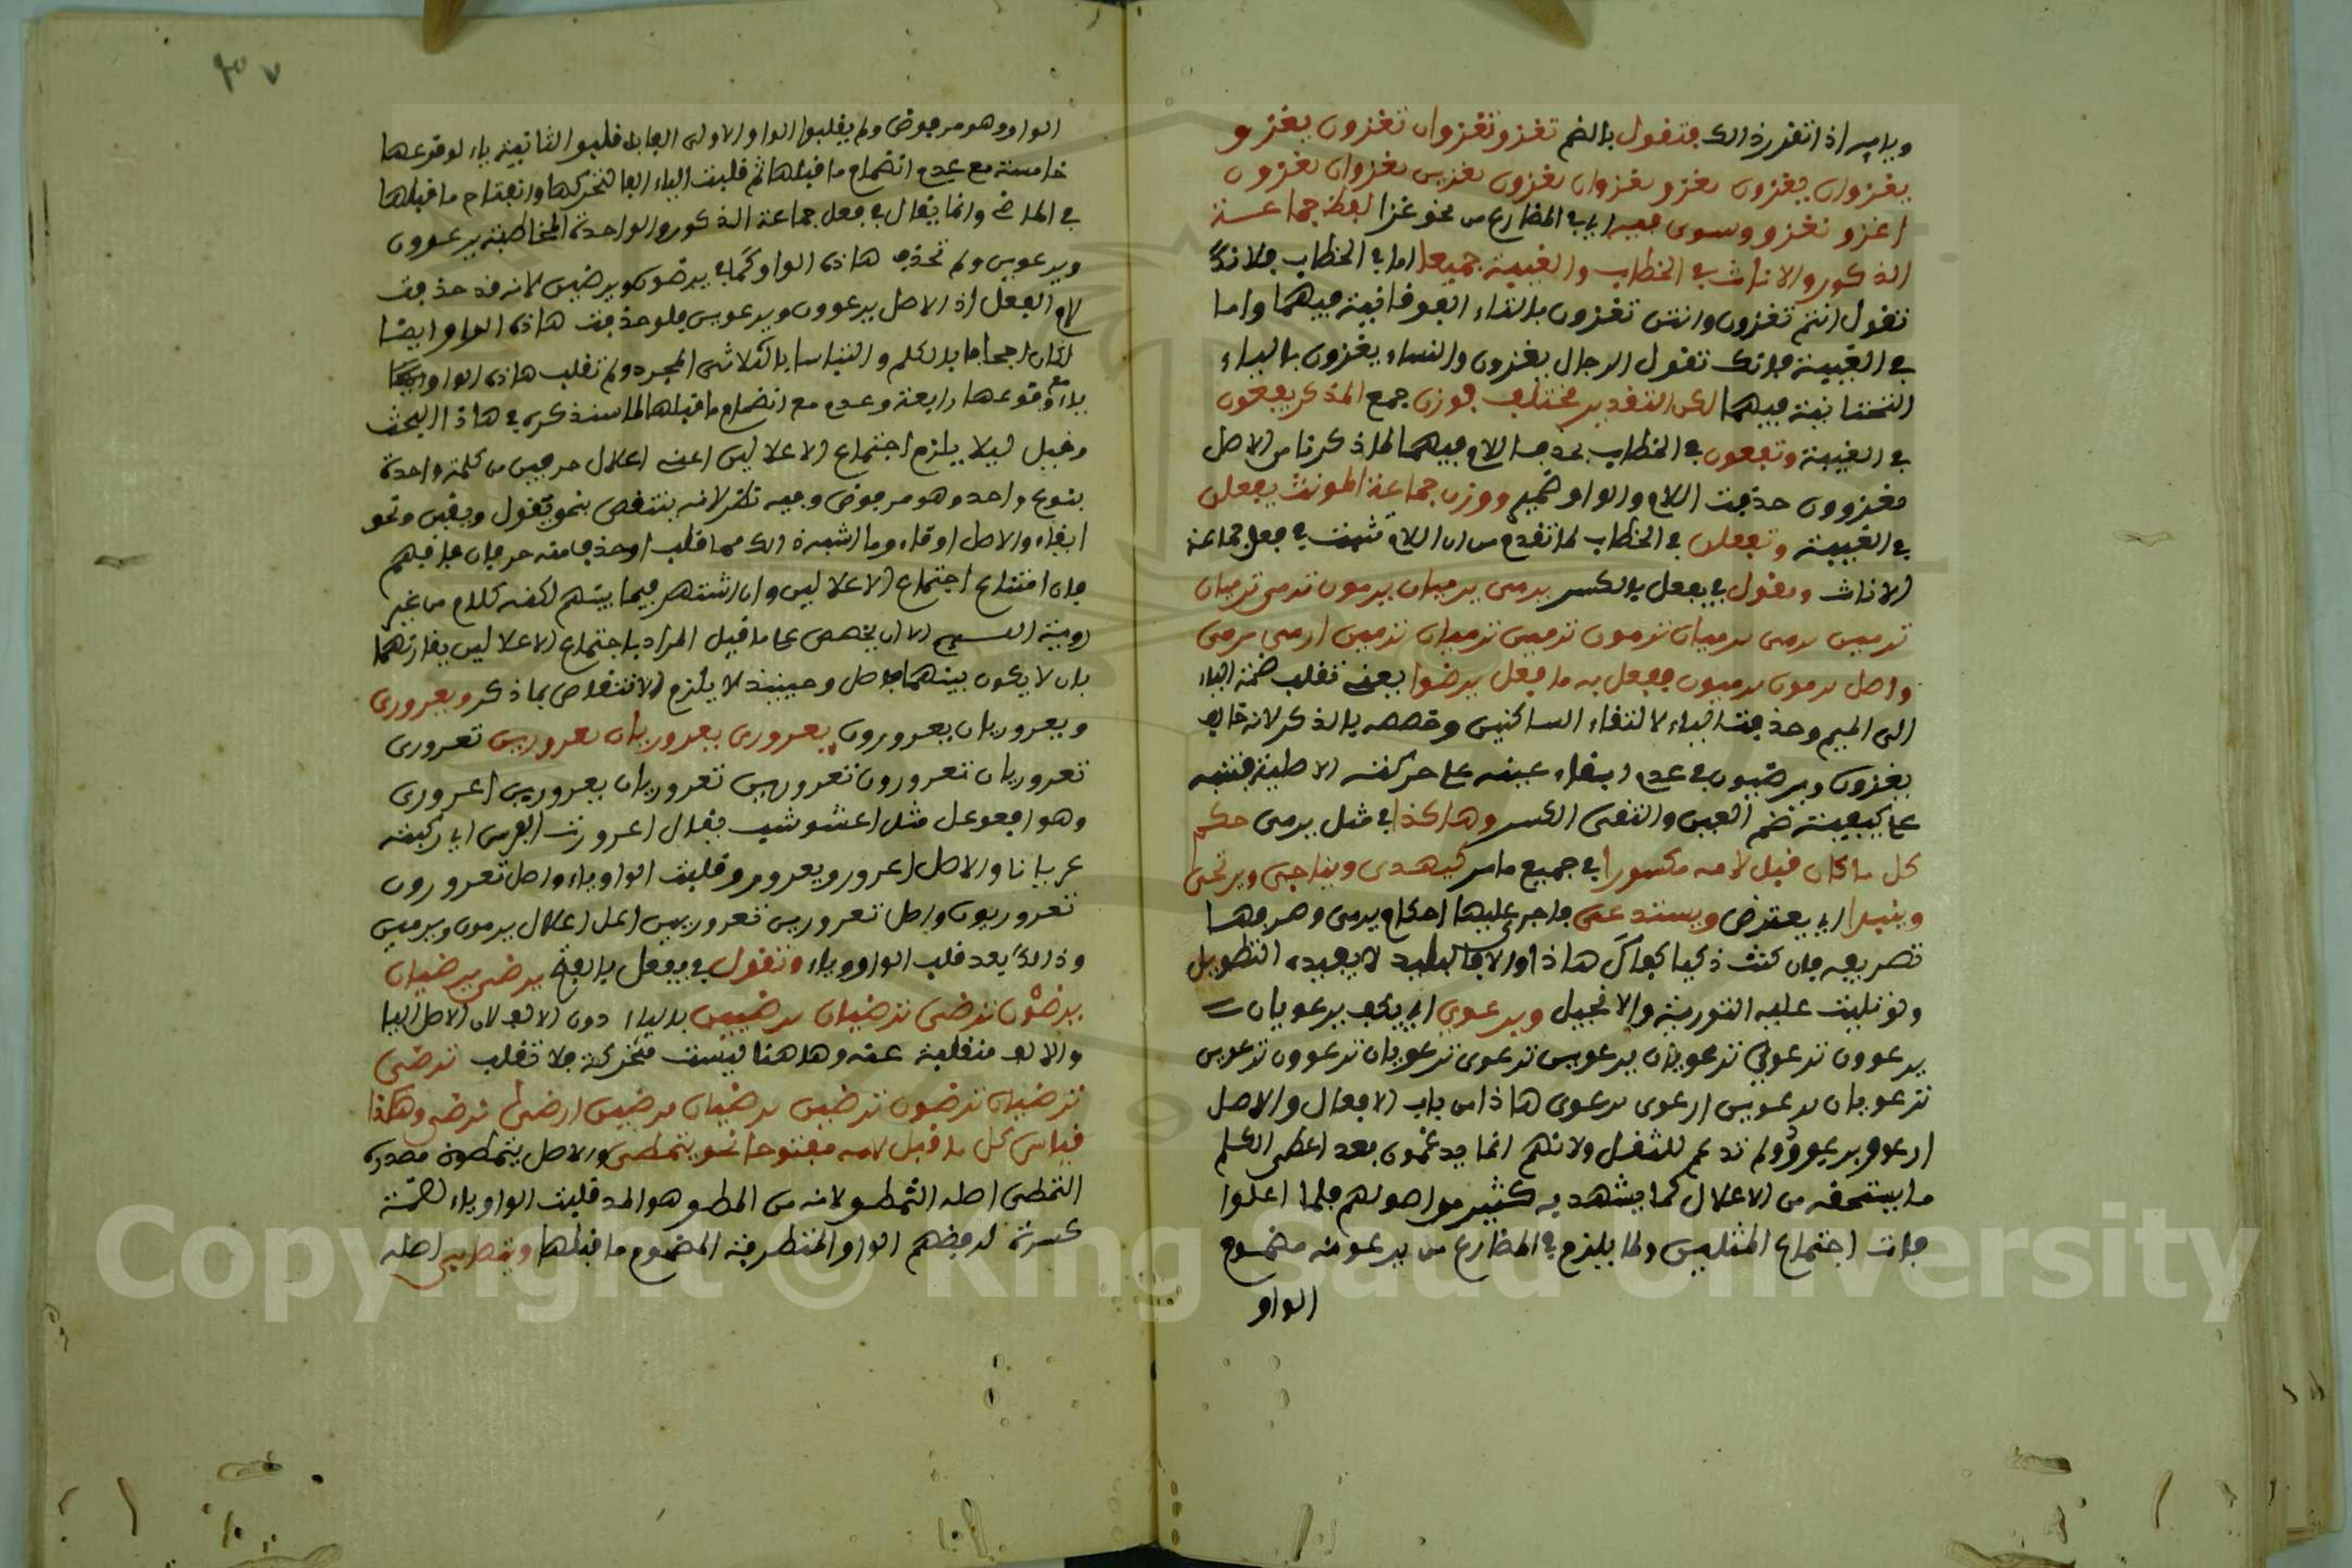 وبابه اذا تقرر ذالك فتقول بالضم تغزو تغزوان تغزون يغزو
يغزوان يغزون تغزو تغزوان يغزون تغزين تغزوان تغزون
اغزو نغزو وسوى فيه اي في المضارع من نحو غزا لفظ جماعة
الذكور والاناث في الخطاب والغيبة جميعا اما في الخطاب فلانك
تقول انتم تغزون وانتن تغزون بالتاء الفوقانية فيهما واما
في الغيبة فانك تقول الرجال يغزون والنساء يغزون بالياء
التحتانية فيهما لكن التقدير مختلف فوزن جمع المذكر يفعون
في الغيبة وتفعون في الخطاب بحذف اللام فيهما لما ذكرنا من الاصل
فغزوون حذفت اللام والواو ضمير ووزن جماعة المونث يفعلن
في الغيبة وتفعلن في الخطاب لما تقدم من ان اللام تثبت في فعل جماعة
الاناث وتقول في يفعل بالكسر يرمى يرميان يرمون ترمى ترميان
يرمين ترمى ترميان ترمون ترمين ترميان ترمين ارمى نرمى
واصل يرمون يرميون ففعل به ما فعل برضوا يعني نقلت ضمة الياء
الى الميم وحذفت الياء لالتقاء الساكنين وخصصه بالذكر لانه خالف
يغزون ويرضون في عدم ابقاء عينه على حركته الاصلية فنبه
على كيفية ضم العين وانتفى الكسر وهاكذا في مثل يرمى حكم
كل ما كان قبل لامه مكسورا في جميع مامر كيهدى ويناجى ويرتجى
وينبرا اي يعترض ويستدعى فاجر عليها احكام يرمى وصرفها
تصريفه فان كنت ذكيا كفاك هاذا والا فالبليد لا يفيده التطويل
ولو تليت عليه التورية والانجيل ويرعوي اي يكف يرعويان
يرعوون ترعوي ترعويان يرعوين ترعوى ترعويان ترعوون ترعوين
ترعويان ترعوين ارعوى نرعوى هاذا من باب الافعال والاصل
ارعوو يرعوو ولم تدغم للثقل ولانهم انما يدغمون بعد اعطى الكلم
ما يستحقه من الاعلال كما يشهد به كثير من اصولهم فلما اعلوا
فات اجتماع المثلين ولما يلزم في المضارع من يرعو منه مضموم
الواو
الواو وهو مرفوض ولم يقلبوا الواو الاولى الفا بل قلبوا الثانية ياء لوقوعها
خامسة مع عدم انضمام ما قبلها ثم قلبت الياء الفا لتحركها وانفتاح ما قبلها
في الماضي وانما يقال في فعل جماعة الذكور والواحدة المخاطبة يرعوون
ويرعوين ولم تحذف هاذه الواو كما في يرضون ويرضين لانه قد حذفت
لام الفعل اذ الاصل يرعوون ويرعوين فلو حذفت هاذه الواو ايضا
لكان اجحافا بالكلم والتباسا بالثلاثى المجرد ولم تقلب هاذه الواو
ياء مع وقوعها رابعة وعدم مع انضمام ما قبلها لما سنذكره في هاذا البحث
وقيل ليلا يلزم اجتماع الاعلالين اعنى اعلال حرفين من كلمة واحدة
بنوع واحد وهو مرفوض وفيه نظر لانه ينتقض بنحو يقول ويقين ونحو
ايفاء والاصل اوقاء وما اشبه ذالك مما قلب او حذف منه حرفان فافهم
فان امتناع اجتماع الاعلالين وان اشتهر فيما بينهم لكنه كلام من غير
روية الا ان يخصص على ما قيل المراد باجتماع الاعلالين يقارنهما
بان لا يكون بينهما فاصل وحينيذ لا يلزم الانتقاض بما ذكر ويعرورى
ويعروريان يعرورون يعرورى يعروريان يعرورين تعرورى
تعروريان تعرورون تعرورين تعروريان يعرورين اعرورى
وهو افعوعل مثل اعشوشب يقال اعروريت الفرس اي ركبته
عريانا والاصل اعرورو يعرورو قلبت الواو ياء واصل تعرورون
تعروريون واصل تعرورين تعروريين اعل اعلال يرمون ويرمين
وذالك بعد قلب الواو ياء وتقول في يفعل بالفتح يرضى يرضيان
يرضون ترضى ترضيان يرضين بالياء دون الالف لان الاصل اليا
والالف منقلبة عنه وهاهنا ليست متحركة فلا تقلب ترضى
ترضيان ترضون ترضين ترضيان ترضين ارضى نرضى وهكذا
قياس كل ما قبل لامه مفتوحا نحو يتمطى والاصل يتمطو مصدره
التمطى اصله التمطو لانه من المطو هو المد قلبت الواو ياء لضمة
كسرة لرفضهم الواو المتطرفة المضموم ما قبلها ويتصابى اصله